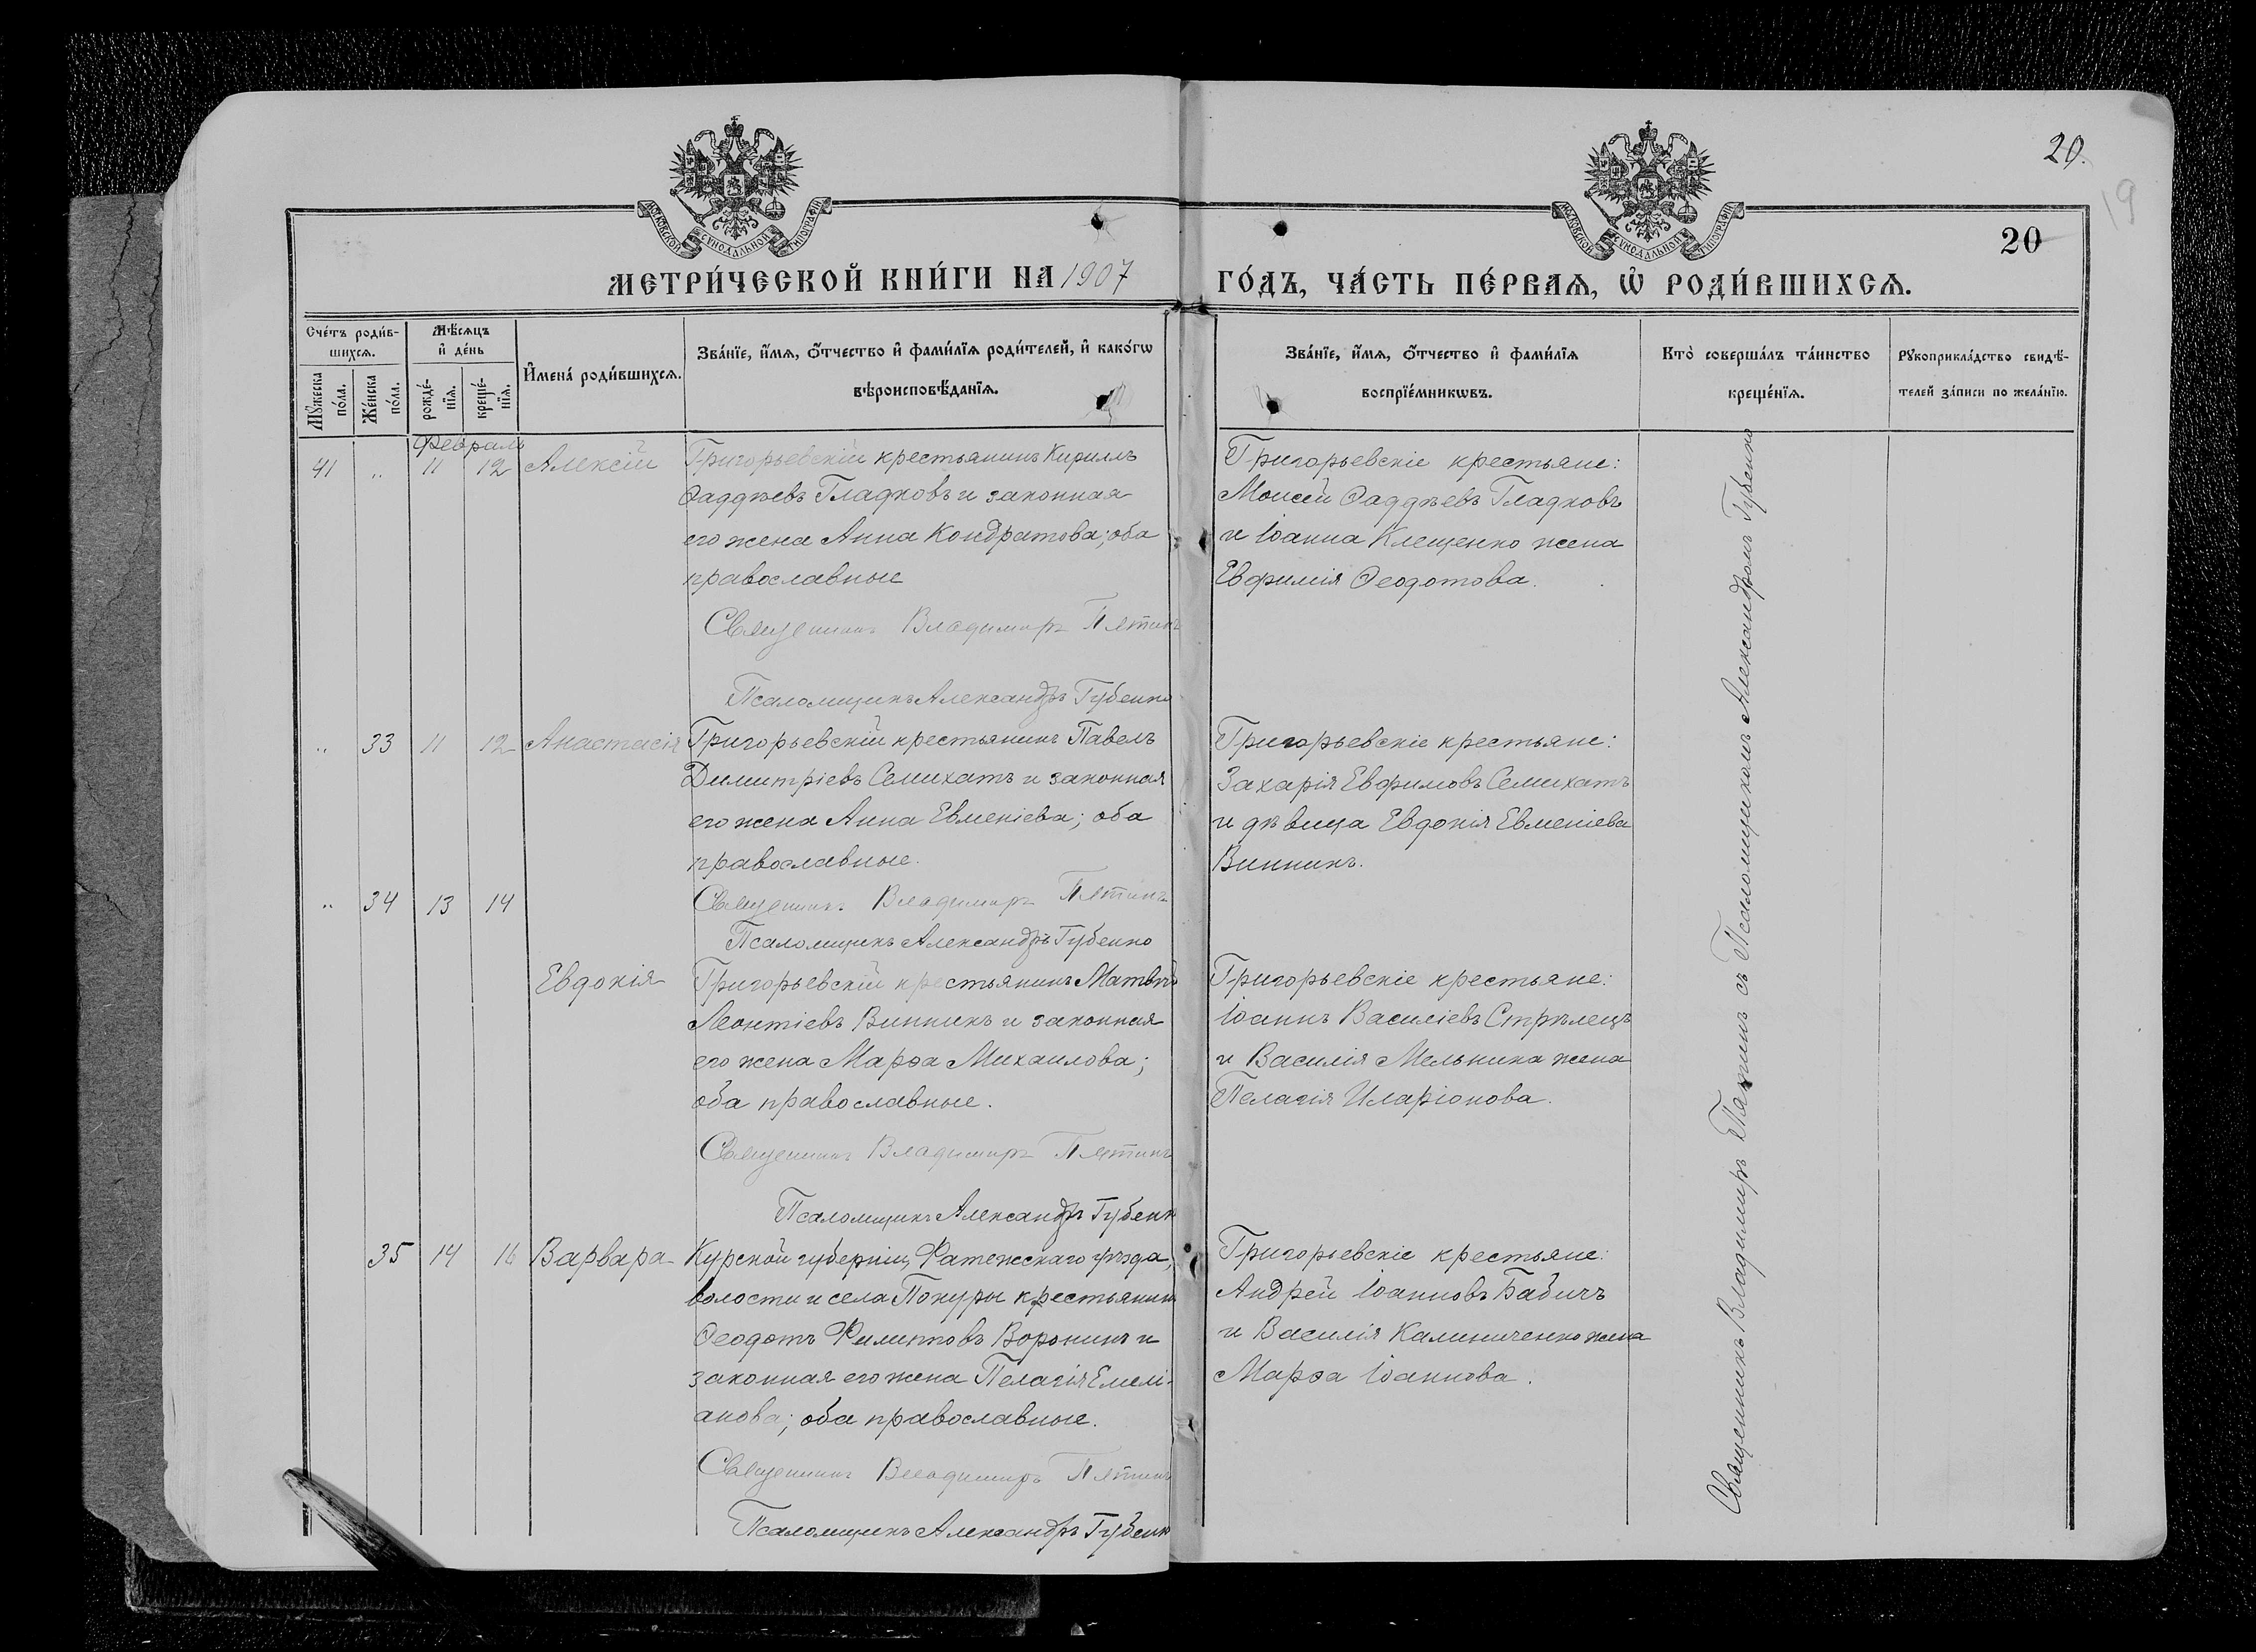 20.
19
МОСКОВСКОЙ СѴНОДАЛЬНОЙ ТИПОГРАФІИ
МОСКОВСКОЙ СѴНОДАЛЬНОЙ ТИПОГРАФІИ
20
МЕТРИ́ЧЕСКОЙ КНИ́ГИ НА 1907
ГО́ДЪ, ЧА́СТЬ ПЕ́РВАѦ, Ѡ҆ РОДИ́ВШИХСѦ.
Сче́тъ роди́в-
шихсѧ.
Мꙋ́жеска по́ла.
Же́нска по́ла.
Мѣ́сѧцъ
и҆ де́нь
рожде́-
нїѧ.
креще́-
нїѧ.
И҆мена́ роди́вшихсѧ.
Зва́нїе, и҆́мѧ, ѻ҆́тчество и҆ фами́лїѧ роди́телей, и҆ како́гѡ
вѣроисповѣ́данїѧ.
Зва́нїе, и҆́мѧ, ѻ҆́тчество и҆ фами́лїѧ
воспрїе́мникѡвъ.
Кто̀ соверша́лъ та́инство
креще́нїѧ.
Рꙋкоприкла́дство свидѣ́-
телей за́писи по жела́нїю.
Февраль
41 „ 11 12 Алексiй
Григорьевскiй крестьянинъ Кириллъ
Ѳаддѣевъ Гладковъ и законная
его жена Анна Кондратова; оба
православные
Священникъ Владимиръ Пятинъ
Псаломщикъ Александръ Губенко
Григорьевскiе крестьяне:
Моисей Ѳаддѣевъ Гладковъ
и Iоанна Клещенко жена
Евфимiя Ѳеодотова.
„ 33 11 12 Анастасiя
Григорьевскiй крестьянинъ Павелъ
Димитрiевъ Семихатъ и законная
его жена Анна Евменiева; оба
православные.
Священникъ Владимиръ Пятинъ
Псаломщикъ Александръ Губенко
Григорьевскiе крестьяне:
Захарiя Евфимовъ Семихатъ
и дѣвица Евдокiя Евменiева
Винникъ.
„ 34 13 14
Евдокiя
Григорьевскiй крестьянинъ Матвѣй
Леонтiевъ Винникъ и законная
его жена Марѳа Михаилова;
оба православные.
Священникъ Владимиръ Пятинъ
Псаломщикъ Александръ Губенк
Григорьевскiе крестьяне:
Iоаннъ Василiевъ Стрѣлецъ
и Василiя Мельника жена
Пелагiя Иларiонова.
35 14 16 Варвара
Курской губернiи, Фатежскаго уѣзда,
волости и села Похуры крестьянинъ
Ѳеодотъ Филипповъ Воронинъ и
законная его жена Пелагiя Емелi-
анова; оба православные.
Священникъ Владимиръ Пятинъ
Псаломщикъ Александръ Губенк
Григорьевскiе крестьяне:
Андрей Iоанновъ Бабичъ
и Василiя Калиниченко жена
Марѳа Iоаннова.
Священникъ Владимиръ Пятинъ съ Псаломщикомъ Александромъ Губенко